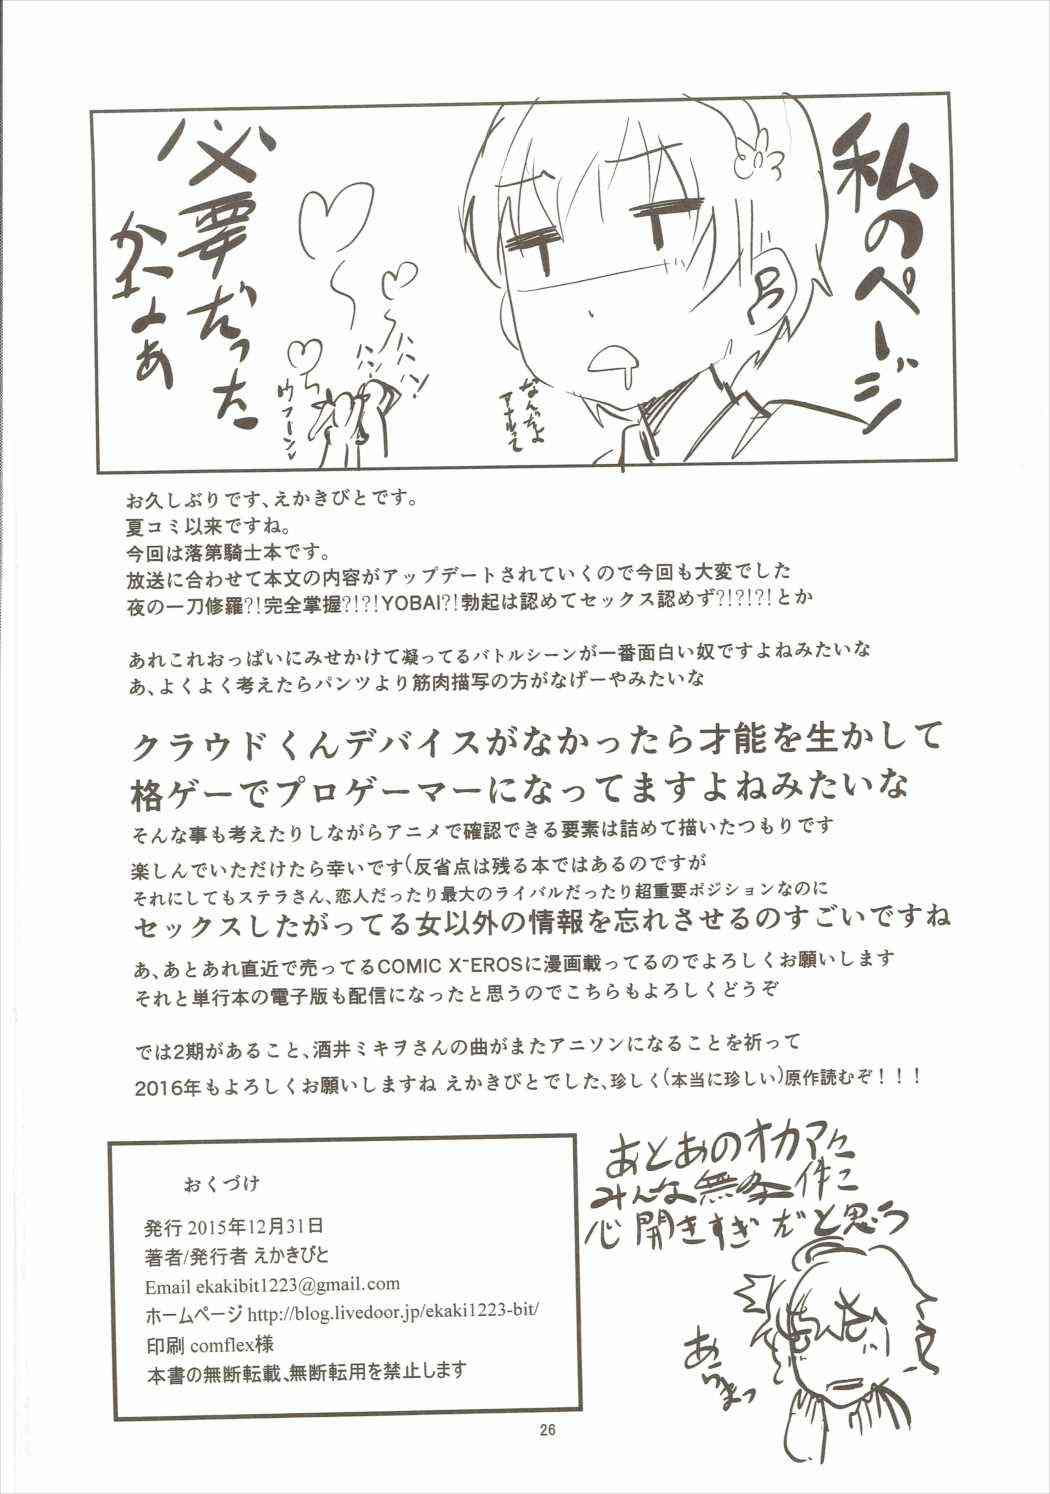 私のページ
必要だった
かなぁ
なんだよ
アナルって
ハン
ハハン
ウフーン
お久しぶりです、えかきびとです。
夏コミ以来ですね。
今回は落第騎士本です。
放送に合わせて本文の内容がアップデートされていくので今回も大変でした
夜の一刀修羅?!完全掌握?!?!YOBAI?!勃起は認めてセックス認めず?!?!?!とか
あれこれおっぱいにみせかけて凝ってるバトルシーンが一番面白い奴ですよねみたいな
あ、よくよく考えたらパンツより筋肉描写の方がなげーやみたいな
クラウドくんデバイスがなかったら才能を生かして
格ゲーでプロゲーマーになってますよねみたいな
そんな事も考えたりしながらアニメで確認できる要素は詰めて描いたつもりです
楽しんでいただけたら幸いです(反省点は残る本ではあるのですが
それにしてもステラさん、恋人だったり最大のライバルだったり超重要ポジションなのに
セックスしたがってる女以外の情報を忘れさせるのすごいですね
あ、あとあれ直近で売ってるCOMIC X-EROSに漫画載ってるのでよろしくお願いします
それと単行本の電子版も配信になったと思うのでこちらもよろしくどうぞ
では2期があること、酒井ミキヲさんの曲がまたアニソンになることを祈って
2016年もよろしくお願いしますね えかきびとでした、珍しく(本当に珍しい)原作読むぞ！！！
あとあのオカマに
みんな無条件に
心開きすぎだと思う
おくづけ
発行 2015年12月31日
著者/発行者 えかきびと
Email ekakibit1223@gmail.com
ホームページ http://blog.livedoor.jp/ekaki1223-bit/
印刷 comflex様
本書の無断転載、無断転用を禁止します
26